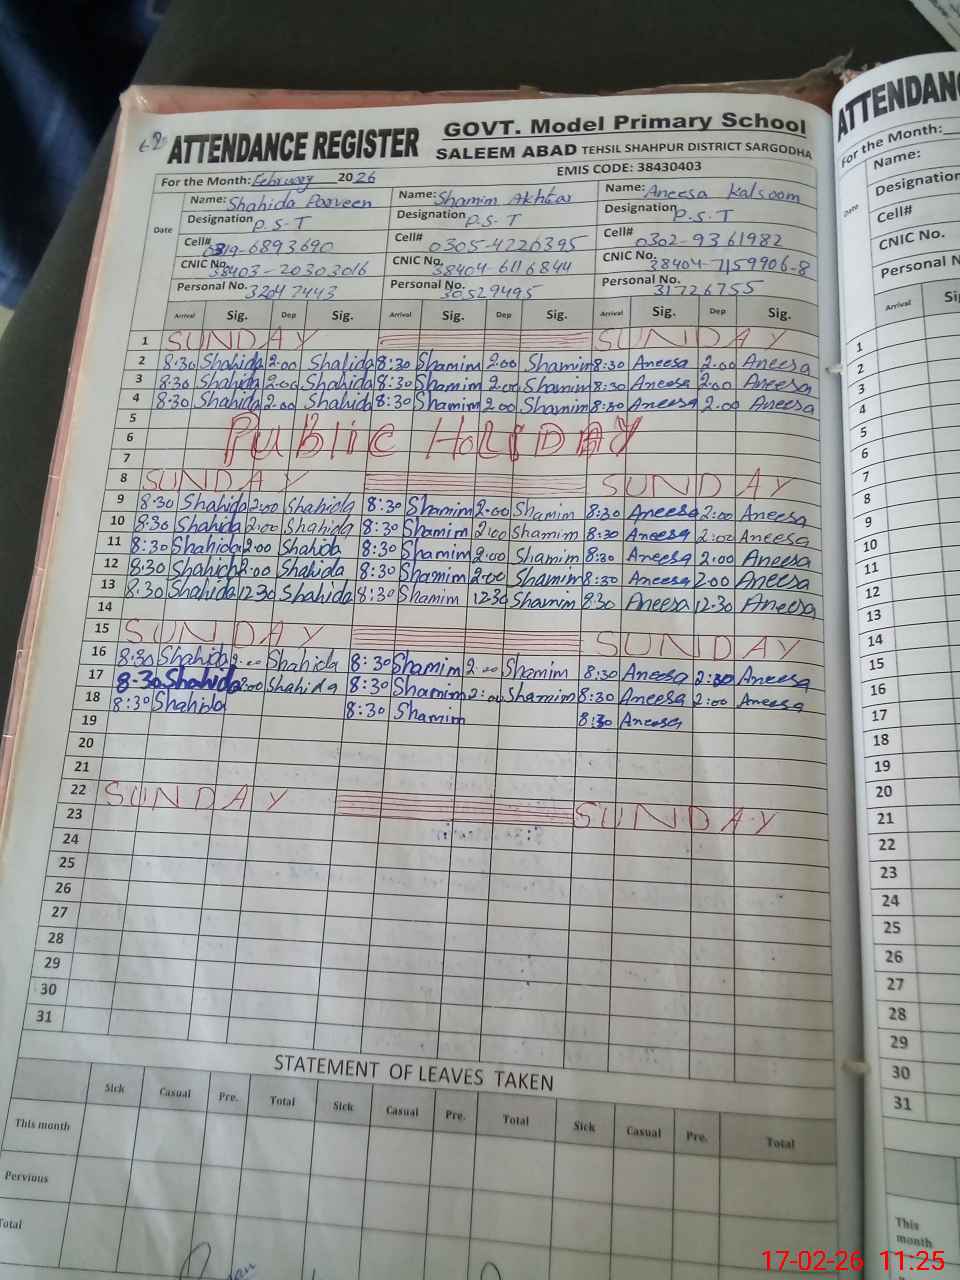 ATTENDANCE REGISTER GOVT. Model Primary School
SALEEM ABAD TEHSIL SHAHPUR DISTRICT SARGODHA
For the Month: February 2026 EMIS CODE: 38430403
Date Name: Shahida Parveen Name: Shamim Akhtar Name: Aneesa Kalsoom
Designation P.S-T Designation P.S-T Designation P.S.T
Cell# 0319-6893690 Cell# 0305-4226395 Cell# 0302-9361982
CNIC No. 38403-20303016 CNIC No. 38404-6116844 CNIC No. 38404-7159906-8
Personal No. 32047443 Personal No. 30529495 Personal No. 31726755
Arrival Sig. Dep Sig. Arrival Sig. Dep Sig. Arrival Sig. Dep Sig.
1 SUNDAY SUNDAY
2 8:30 Shahida 2:00 Shahida 8:30 Shamim 2:00 Shamim 8:30 Aneesa 2:00 Aneesa
3 8:30 Shahida 2:00 Shahida 8:30 Shamim 2:00 Shamim 8:30 Aneesa 2:00 Aneesa
4 8:30 Shahida 2:00 Shahida 8:30 Shamim 2:00 Shamim 8:30 Aneesa 2:00 Aneesa
5
6 Public HOLIDAY
7
8 SUNDAY SUNDAY
9 8:30 Shahida 2:00 Shahida 8:30 Shamim 2:00 Shamim 8:30 Aneesa 2:00 Aneesa
10 8:30 Shahida 2:00 Shahida 8:30 Shamim 2:00 Shamim 8:30 Aneesa 2:00 Aneesa
11 8:30 Shahida 2:00 Shahida 8:30 Shamim 2:00 Shamim 8:30 Aneesa 2:00 Aneesa
12 8:30 Shahida 2:00 Shahida 8:30 Shamim 2:00 Shamim 8:30 Aneesa 2:00 Aneesa
13 8:30 Shahida 12:30 Shahida 8:30 Shamim 12:30 Shamim 8:30 Aneesa 12:30 Aneesa
14
15 SUNDAY SUNDAY
16 8:30 Shahida 2:00 Shahida 8:30 Shamim 2:00 Shamim 8:30 Aneesa 2:30 Aneesa
17 8:30 Shahida 2:00 Shahida 8:30 Shamim 2:00 Shamim 8:30 Aneesa 2:00 Aneesa
18 8:30 Shahida 8:30 Shamim 8:30 Aneesa
19
20
21
22 SUNDAY SUNDAY
23
24
25
26
27
28
29
30
31
STATEMENT OF LEAVES TAKEN
Sick Casual Pre. Total Sick Casual Pre. Total Sick Casual Pre. Total
This month
Pervious
Total
ATTENDAN
For the Month:
Name:
Date Designation
Cell#
CNIC No.
Personal N
Arrival
1
2
3
4
5
6
7
8
9
10
11
12
13
14
15
16
17
18
19
20
21
22
23
24
25
26
27
28
29
30
31
This
month
17-02-26 11:25